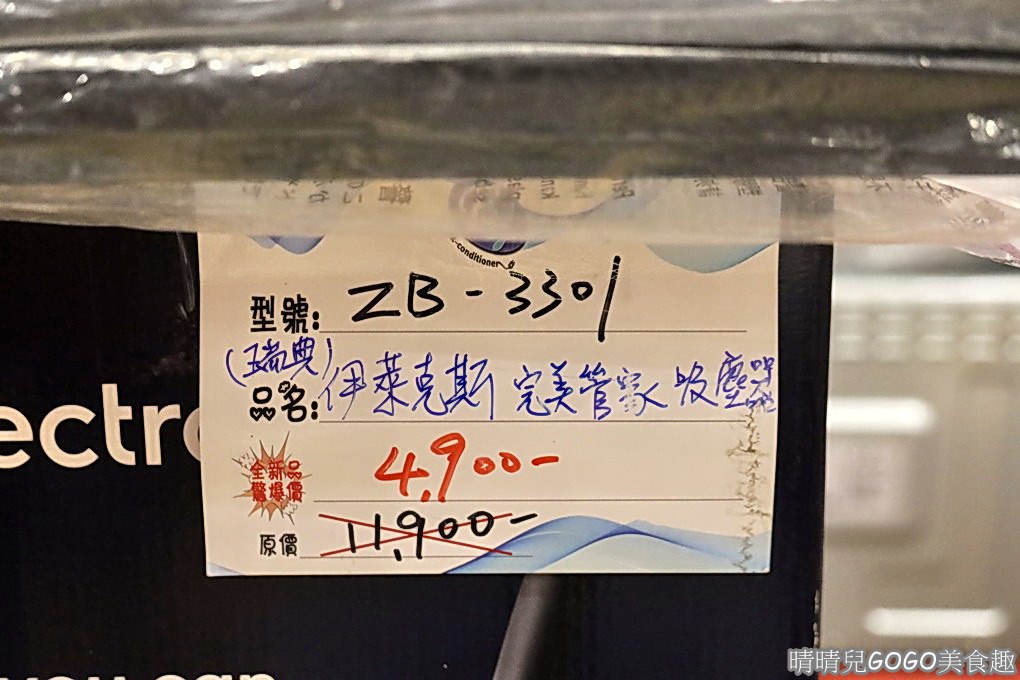 -conditioner
型號: ZB-3301
(瑞典)
品名: 伊萊克斯 完美管家 吸塵器
ectr
全新品
驚爆價
4,900-
原價 11,900-
you can
晴晴兒GOGO美食趣